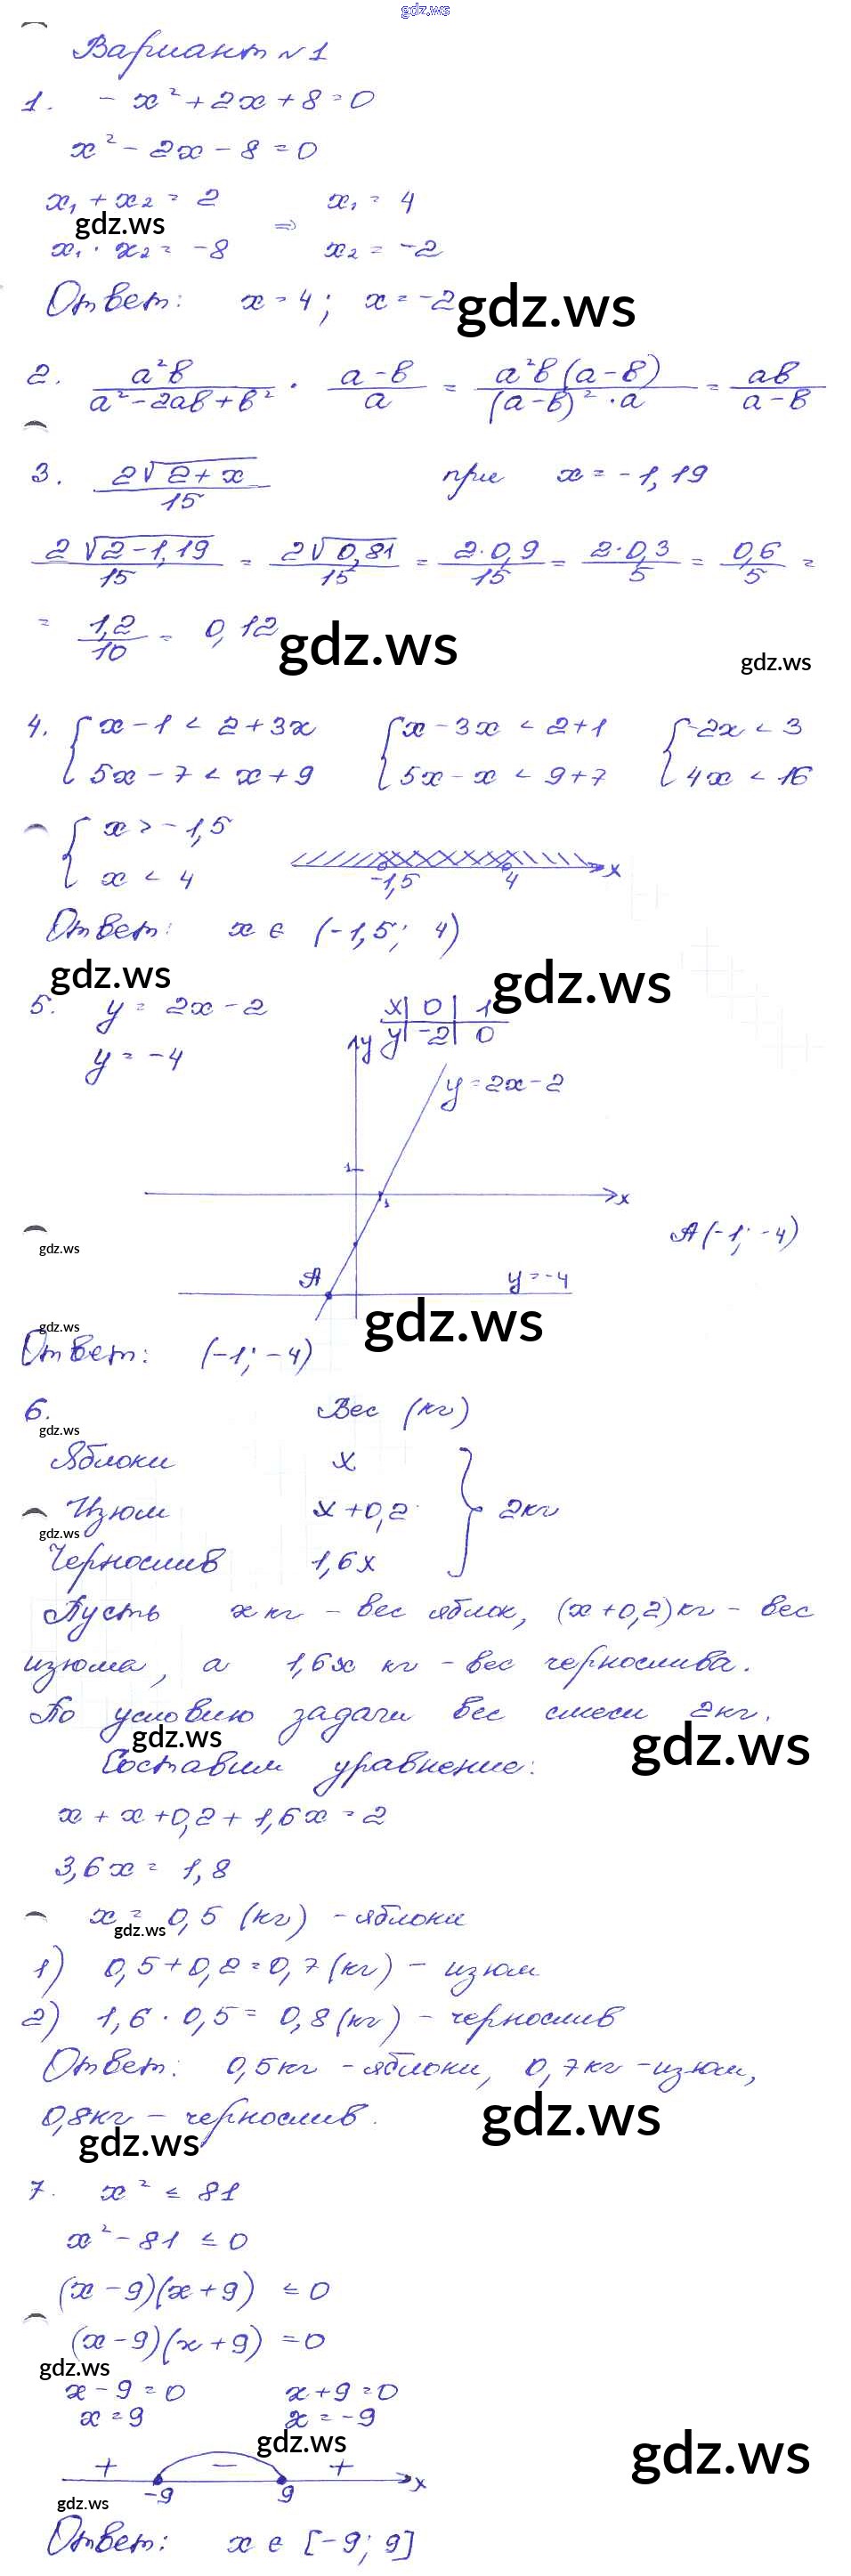 gdz.ws
Вариант №1
1. -x² + 2x + 8 = 0
x² - 2x - 8 = 0
x₁ + x₂ = 2 ⇒ x₁ = 4
gdz.ws
x₁ · x₂ = -8 x₂ = -2
Ответ: x = 4; x = -2
gdz.ws
2. a²b / (a² - 2ab + b²) · (a - b) / a = a²b(a - b) / ((a - b)² · a) = ab / (a - b)
3. 2√(2 + x) / 15 при x = -1,19
2√(2 - 1,19) / 15 = 2√(0,81) / 15 = 2·0,9 / 15 = 2·0,3 / 5 = 0,6 / 5 =
= 1,2 / 10 = 0,12
gdz.ws
gdz.ws
4. { x - 1 < 2 + 3x { x - 3x < 2 + 1 { -2x < 3
5x - 7 < x + 9 5x - x < 9 + 7 4x < 16
{ x > -1,5
x < 4 -1,5 4 x
Ответ: x ∈ (-1,5; 4)
gdz.ws
gdz.ws
5. y = 2x - 2 x | 0 | 1
y = -4 y | -2 | 0
y
y = 2x - 2
1
1 x
A(-1; -4)
gdz.ws
A y = -4
gdz.ws
gdz.ws
Ответ: (-1; -4)
6. Вес (кг)
gdz.ws
Яблоки x
Изюм x + 0,2 } 2кг
gdz.ws
Чернослив 1,6x
Пусть x кг - вес яблок, (x + 0,2) кг - вес
изюма, а 1,6x кг - вес чернослива.
По условию задачи вес смеси 2кг.
gdz.ws
gdz.ws
Составим уравнение:
x + x + 0,2 + 1,6x = 2
3,6x = 1,8
x = 0,5 (кг) - яблоки
gdz.ws
1) 0,5 + 0,2 = 0,7 (кг) - изюм
2) 1,6 · 0,5 = 0,8 (кг) - чернослив
Ответ: 0,5кг - яблоки, 0,7кг - изюм,
0,8кг - чернослив.
gdz.ws
gdz.ws
7. x² ≤ 81
x² - 81 ≤ 0
(x - 9)(x + 9) ≤ 0
(x - 9)(x + 9) = 0
gdz.ws
x - 9 = 0 x + 9 = 0
x = 9 x = -9
gdz.ws
gdz.ws
+ - + x
-9 9
gdz.ws
Ответ: x ∈ [-9; 9]